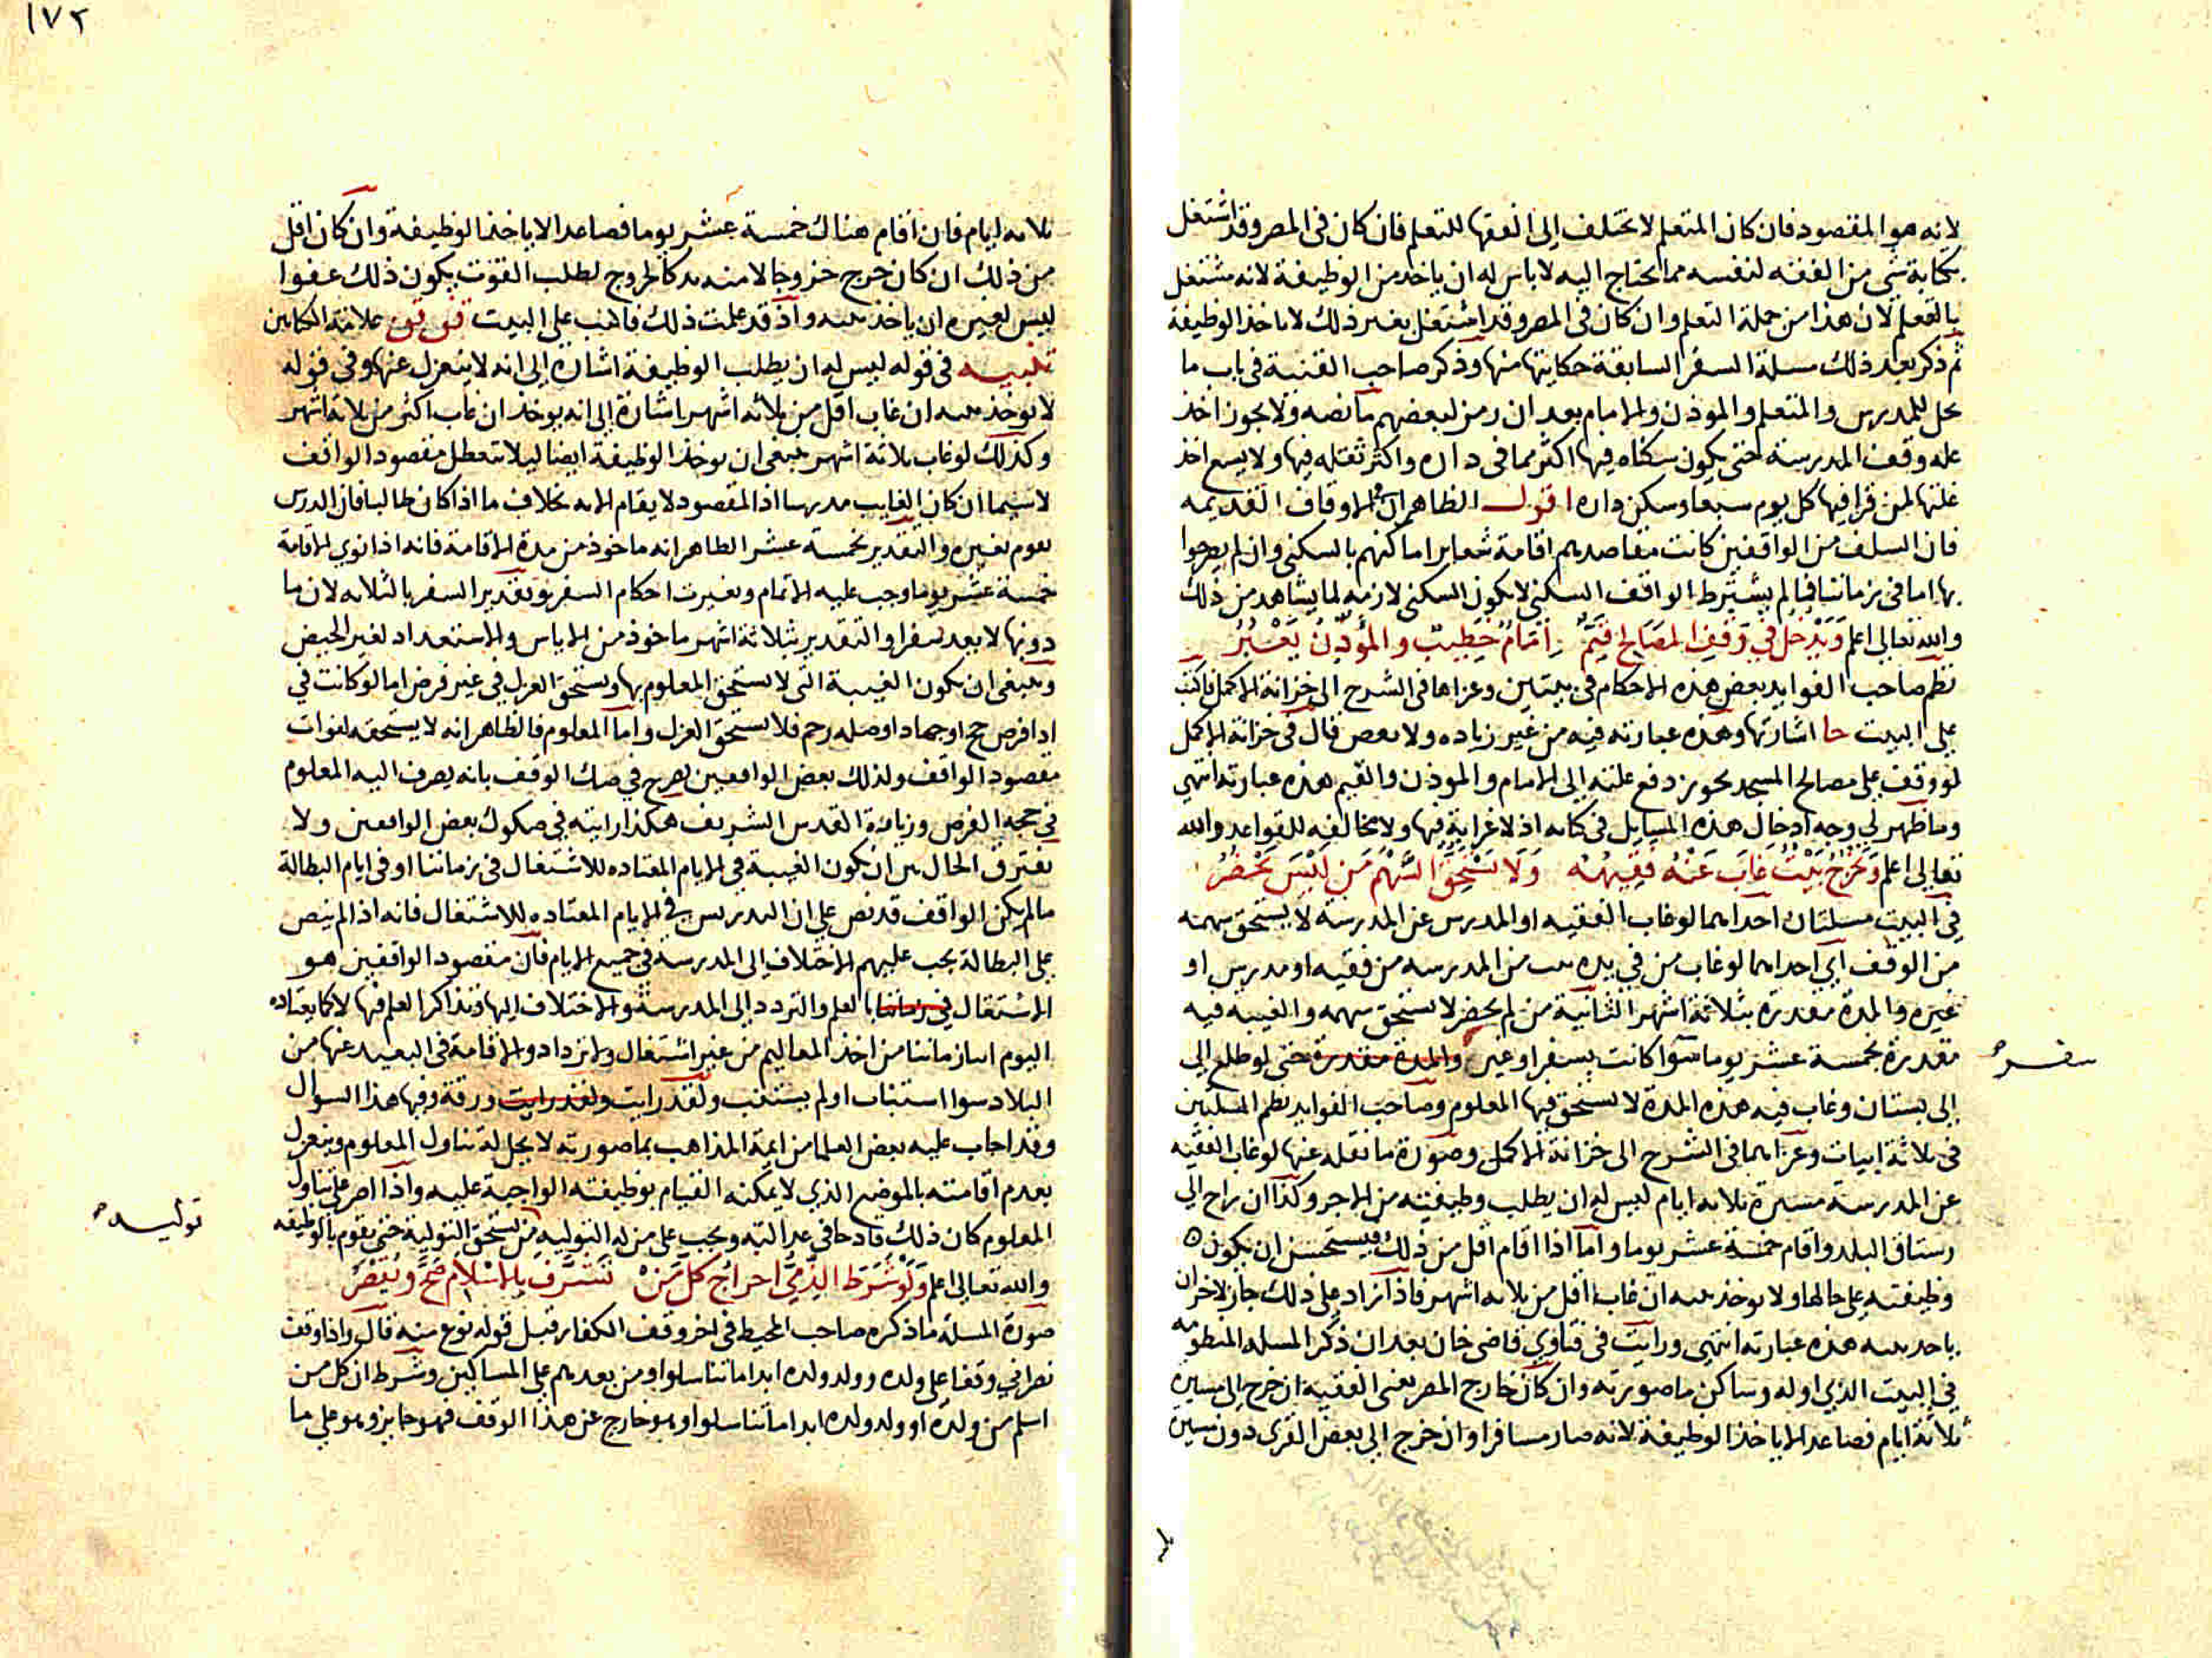 لانه هو المقصود فان كان المتعلم لا يختلف الى الفقها للتعلم فان كان فى المصر وقد اشتغل
بكتابة شي من الفقه لنفسه مما يحتاج اليه لا باس له ان ياخذ من الوظيفة لانه مشتغل
بالتعلم لان هذا من جملة التعلم وان كان فى المصر وقد اشتغل بغير ذلك لا ياخذ الوظيفة
ثم ذكر بعد ذلك مسلة السفر السابقة حكايتها منها وذكر صاحب القنية فى باب ما
يحل للمدرس والمتعلم والموذن والامام بعد ان رمز لبعضهم ما نصه ولا يجوز اخذ
غلة وقف المدرسة حتى يكون سكناه فيها اكثر مما فى داره واكثر ثقله فيها ولا يسع اخذ
غلتها لمن قرا فيها كل يوم سبعا وسكن داره اقول الظاهر ان الاوقاف القديمه
فان السلف من الواقفين كانت مقاصدهم اقامة شعاير اماكنهم بالسكنى وان لم يصرحوا
بها اما فى زماننا فما لم يشترط الواقف السكنى لا يكون السكنى لازمه لما يشاهد من ذلك
والله تعالى اعلم وَيَدْخُل في وَقْفِ المَصَالِح قَيِّمٌ اِمَامٌ خَطِيبٌ والمُؤَذِّنُ يَعْبُرُ
نظم صاحب الفوايد بعض هذه الاحكام فى بيتين وعزاها فى الشرح الى خزانة الاكمل فاكتب
على البيت حا اشارتها وهذه عبارته فيه من غير زياده ولا نقص قال فى خزانة الاكمل
لو وقف على مصالح المسجد يجوز دفع غلته الى الامام والموذن والقيم هذه عبارته انتهى
وما ظهر لي وجه ادخال هذه المسايل فى كتابه اذ لا غرابة فيها ولا مخالفه للقواعد والله
تعالى اعلم وَيَخْرُجُ بَيْتٌ غابَ عَنْهُ فَقِيهُهُ وَلَا يَسْتَحِقُّ السَّهْمَ مَن لَيْسَ يَحْضُرُ
فى البيت مسلتان احداهما لو غاب الفقيه او المدرس عن المدرسة لا يستحق سهمه
من الوقف اي احداهما لو غاب من في يده بيت من المدرسه من فقيه او مدرس او
غيره والمدة مقدرة بثلاثة اشهر الثانية من لم يحضر لا يستحق سهمه والغيبه فيه
مقدرة بخمسة عشر يوما سوا كانت بسفر او غيره والمدة مقدرة حتى لو طلع الى
سفره
الى بستان وغاب فيه هذه المدة لا يستحق فيها المعلوم وصاحب الفوايد نظم المسلتين
فى ثلاثة ابيات وعزاهما فى الشرح الى خزانة الاكمل وصورة ما نقله عنها لو غاب الفقيه
عن المدرسة مسيرة ثلاثه ايام ليس له ان يطلب وظيفته من الاجر وكذا ان راح الى
رستاق البلد واقام خمسة عشر يوما واما اذا اقام اقل من ذلك فيستحسن ان يكون
وظيفته على حالها ولا يوخذ بيته ان غاب اقل من ثلاثه اشهر فاذا زاد على ذلك جاز لاخر ان
ياخذ بيته هذه عبارته انتهى ورايت فى فتاوي قاضى خان بعد ان ذكر المسله المنظومه
في البيت الذي اوله وساكن ما صورته وان كان خارج المصر يعنى الفقيه ان خرج الى مسيرة
ثلاثة ايام فصاعدا لا ياخذ الوظيفة لانه صار مسافرا وان خرج الى بعض القرى دون مسيرة
١٧٢
ثلاثه ايام فان اقام هناك خمسة عشر يوما فصاعدا لا ياخذ الوظيفة وان كان اقل
من ذلك ان كان خرج خروجا لا منه بد كالخروج لطلب القوت يكون ذلك عفوا
ليس لغيره ان ياخذ بيته واذ قد علمت ذلك فاكتب على البيت علامة الكتابين
تنبيه فى قوله ليس له ان يطلب الوظيفة اشارة الى انه لا ينعزل عنها وفى قوله
لا يوخذ بيته ان غاب اقل من ثلاثه اشهر اشارة الى انه يوخذ ان غاب اكثر من ثلاثة اشهر
وكذلك لو غاب ثلاثة اشهر ينبغى ان يوخذ الوظيفة ايضا ليلا يتعطل مقصود الواقف
لا سيما ان كان الغايب مدرسا اذ المقصود لا يقام الا به بخلاف ما اذا كان طالبا فان الدرس
يقوم بغيره والتقدير بخمسة عشر الظاهر انه ماخوذ من مدة الاقامة فانه اذا نوي الاقامة
خمسة عشر يوما وجب عليه الاتمام وتغيرت احكام السفر وتقدير السفر بالثلاثه لان ما
دونها لا يعد سفرا والتقدير بثلاثة اشهر ماخوذ من الاياس والاستعداد لغير الحيض
وينبغى ان يكون الغيبة التى لا يستحق المعلوم بها ويستحق العزل في غير فرض اما لو كانت في
ادا فرض حج او جهاد او صله رحم فلا يستحق العزل واما المعلوم فالظاهر انه لا يستحقه لفوات
مقصود الواقف ولذلك بعض الواقفين يصرح في صك الوقف بانه يصرف اليه المعلوم
في حجه الفرض وزيارة القدس الشريف هكذا رايته في صكوك بعض الواقفين ولا
يفترق الحال بين ان يكون الغيبة في الايام المعتاده للاشتغال فى زماننا او فى ايام البطالة
ما لم يكن الواقف قد نص على ان التدريس في الايام المعتاده للاشتغال فانه اذا لم ينص
على البطالة يجب عليهم الاختلاف الى المدرسه في جميع الايام فان مقصود الواقفين هو
الاشتغال في زماننا بالعلم والتردد الى المدرسة والاختلاف اليها وتذاكر العلم فيها لا كما يعتاده
اليوم ابنا زماننا من اخذ المعاليم من غير اشتغال ولا ترداد والاقامة فى البعيد عنها من
البلاد سوا استناب او لم يستنب ولقد رايت ولقد رايت ورقة وفيها هذا السوال
وقد اجاب عليه بعض العلما من ايمة المذاهب بما صورته لا يحل له تناول المعلوم وينعزل
بعدم اقامته بالموضع الذي لا يمكنه القيام بوظيفته الواجبة عليه واذا اصر على تناول
المعلوم كان ذلك قادحا في عدالته ويجب على من له التوليه من يستحق التولية حتى يقوم بالوظيفه
توليه
والله تعالى اعلم وَلَوْ شَرَطَ الذِّمِّيُّ اخراجَ كُلِّ مَنْ تَشَرَّفَ بالاسْلَامِ صَحَّ وَيُقْصَرُ
صورة المسلة ما ذكره صاحب المحيط فى اخر وقف الكفار قبل قوله نوع منه قال واذا وقف
نصراني وقفا على ولده وولد ولده ابدا ما تناسلوا ومن بعدهم على المساكين وشرط ان كل من
اسلم من ولده او ولد ولده ابدا ما تناسلوا وهو خارج عن هذا الوقف فهو جايز وهو على ما